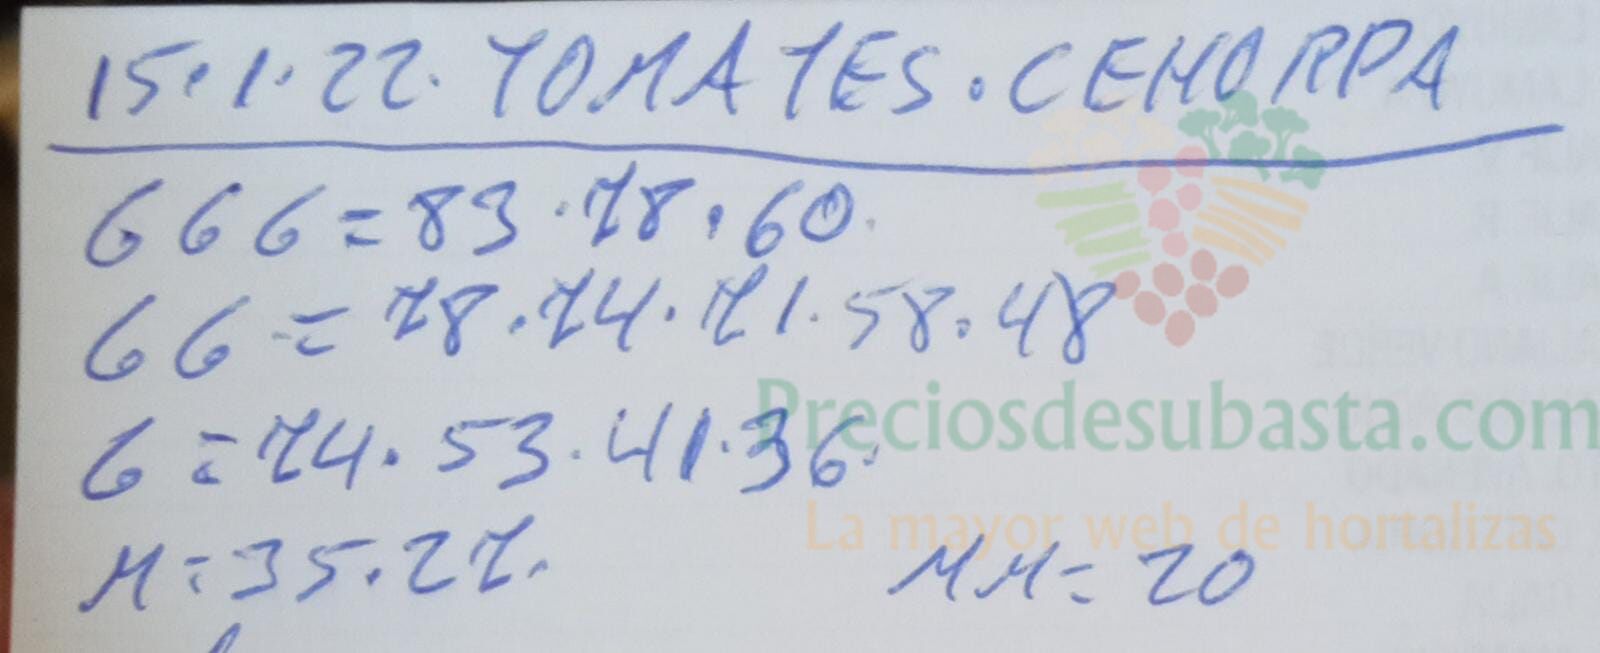 15.1.22. TOMATES. CEHORPA
666=83.78.60.
66=78.74.71.58.48
6=74.53.41.36.
M=35.27.
MM=20
Preciosdesubasta.com
La mayor web de hortalizas